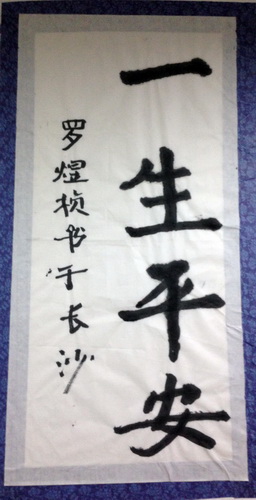 一生平安
罗煜桢书于长沙